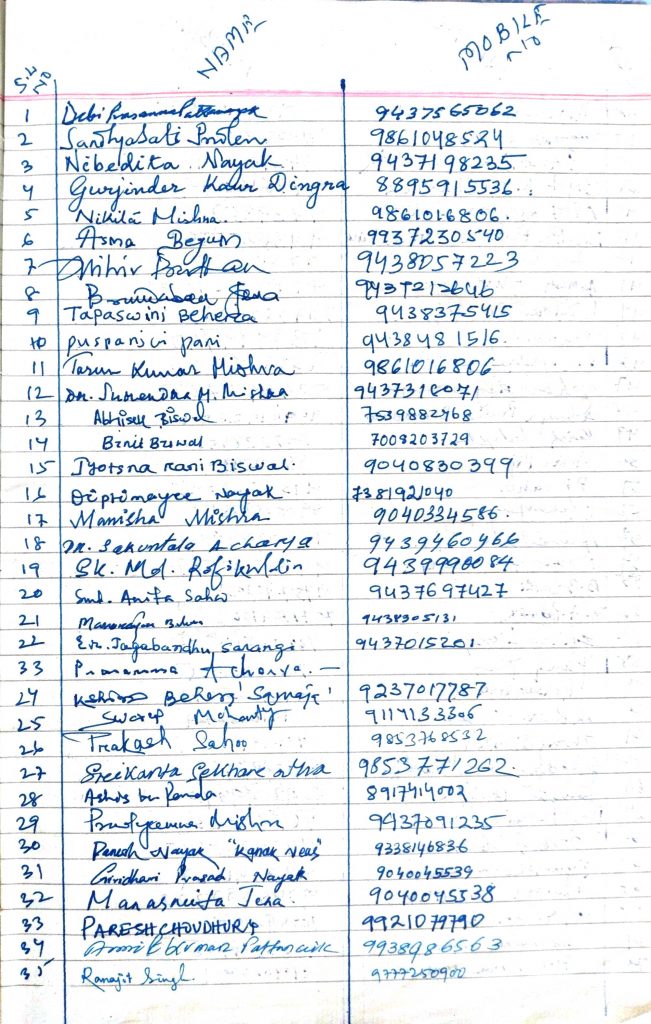 Sr. No NAME MOBILE NO
1 Debi Prasanna Pattanayak 9437565062
2 9861048524
3 Nibedita Nayak 9437198235
4 Gurjinder Kaur Dingra 8895915536
5 Nikita Mishra. 9861016806.
6 Asma Begum 9937230540
7 Mihir 9438057223
8 Jena
9 Tapaswini Behera 9438375415
10 puspanjali pani 943848 1516.
11 Tarun Kumar Mishra 9861016806
12 Dr. Surendra M. Mishra
13 Abhisek Biswal 7539882468
14 Biswal 7008203729
15 Jyotsna rani Biswal. 9040830399
16 Diptimayee Nayak 7381921040
17 Manisha Mishra 9040334586.
18 Dr. Sakuntala Acharya 9439460466
19 SK. Md. Rofikuddin 9439990084
20 Smt. Anita Sahoo 9437697427
21 9438305131
22 Er. Jagabandhu Sarangi 9437015201
33 Acharya. —
24 Behera 'Samaja' 9237017787
25 Swarup Mohanty 9114133306
26 Prakash Sahoo 9853768532
27 Sreekanta Sekhar 9853771262
28 Panda 8917414002
29 Mishra 9437091235
30 Nayak "Kanak News" 9338146836
31 Giridhari Prasad Nayak 9040045539
32 Manasmita Jena 9040045538
33 PARESH CHOUDHURY 9921079790
34 Kumar Pattnaik 9938986563
35 Ranajit Singh. 9777250900